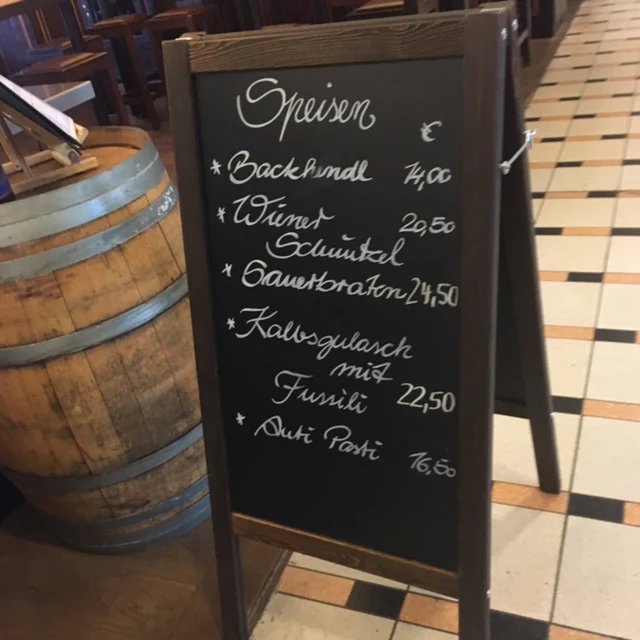 Speisen
€
* Backhendl 14,00
* Wiener 20,50
Schnitzel
* Sauerbraten 24,50
* Kalbsgulasch
mit
Fussili 22,50
* Anti Pasti 16,50